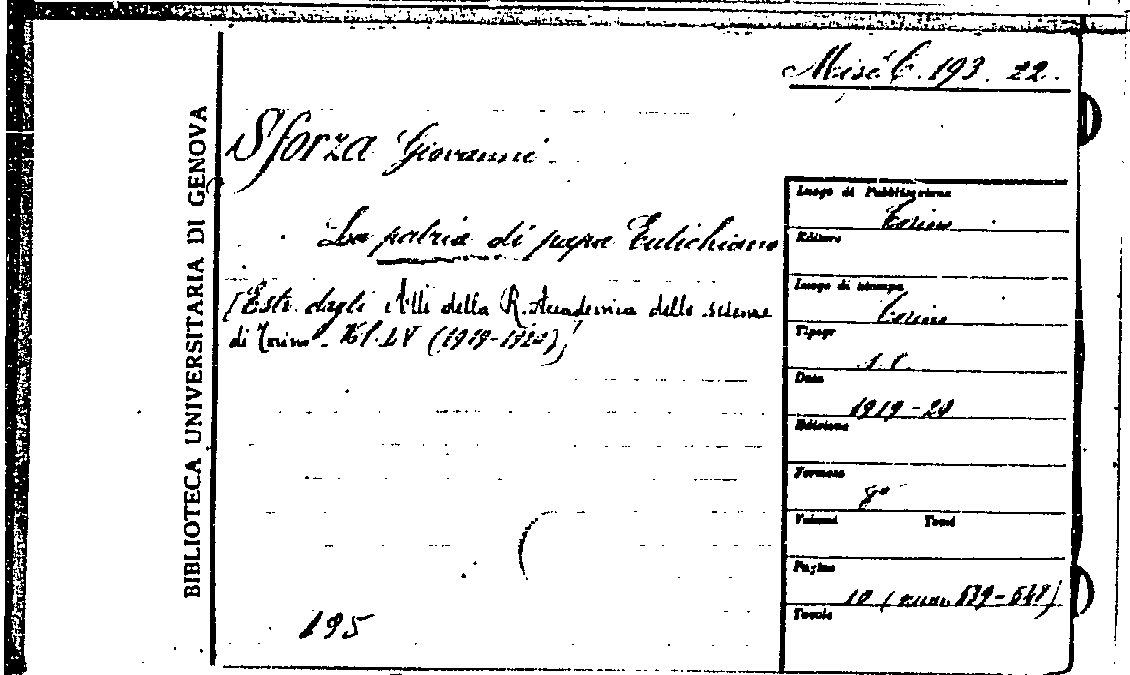 Misc. C. 193. 22.
BIBLIOTECA UNIVERSITARIA DI GENOVA
Sforza Giovanni
La patria di papa Eutichiano
[Estr. dagli Atti della R. Accademia delle scienze
di Torino. Vol. LV (1919-1920)]
195
Luogo di Pubblicazione
Torino
Editore
Luogo di stampa
Torino
Tipogr
Data
1919-20
Edizione
Formato
8°
Volumi Tomi
Pagine
10 (num. 639-648)
Tavole